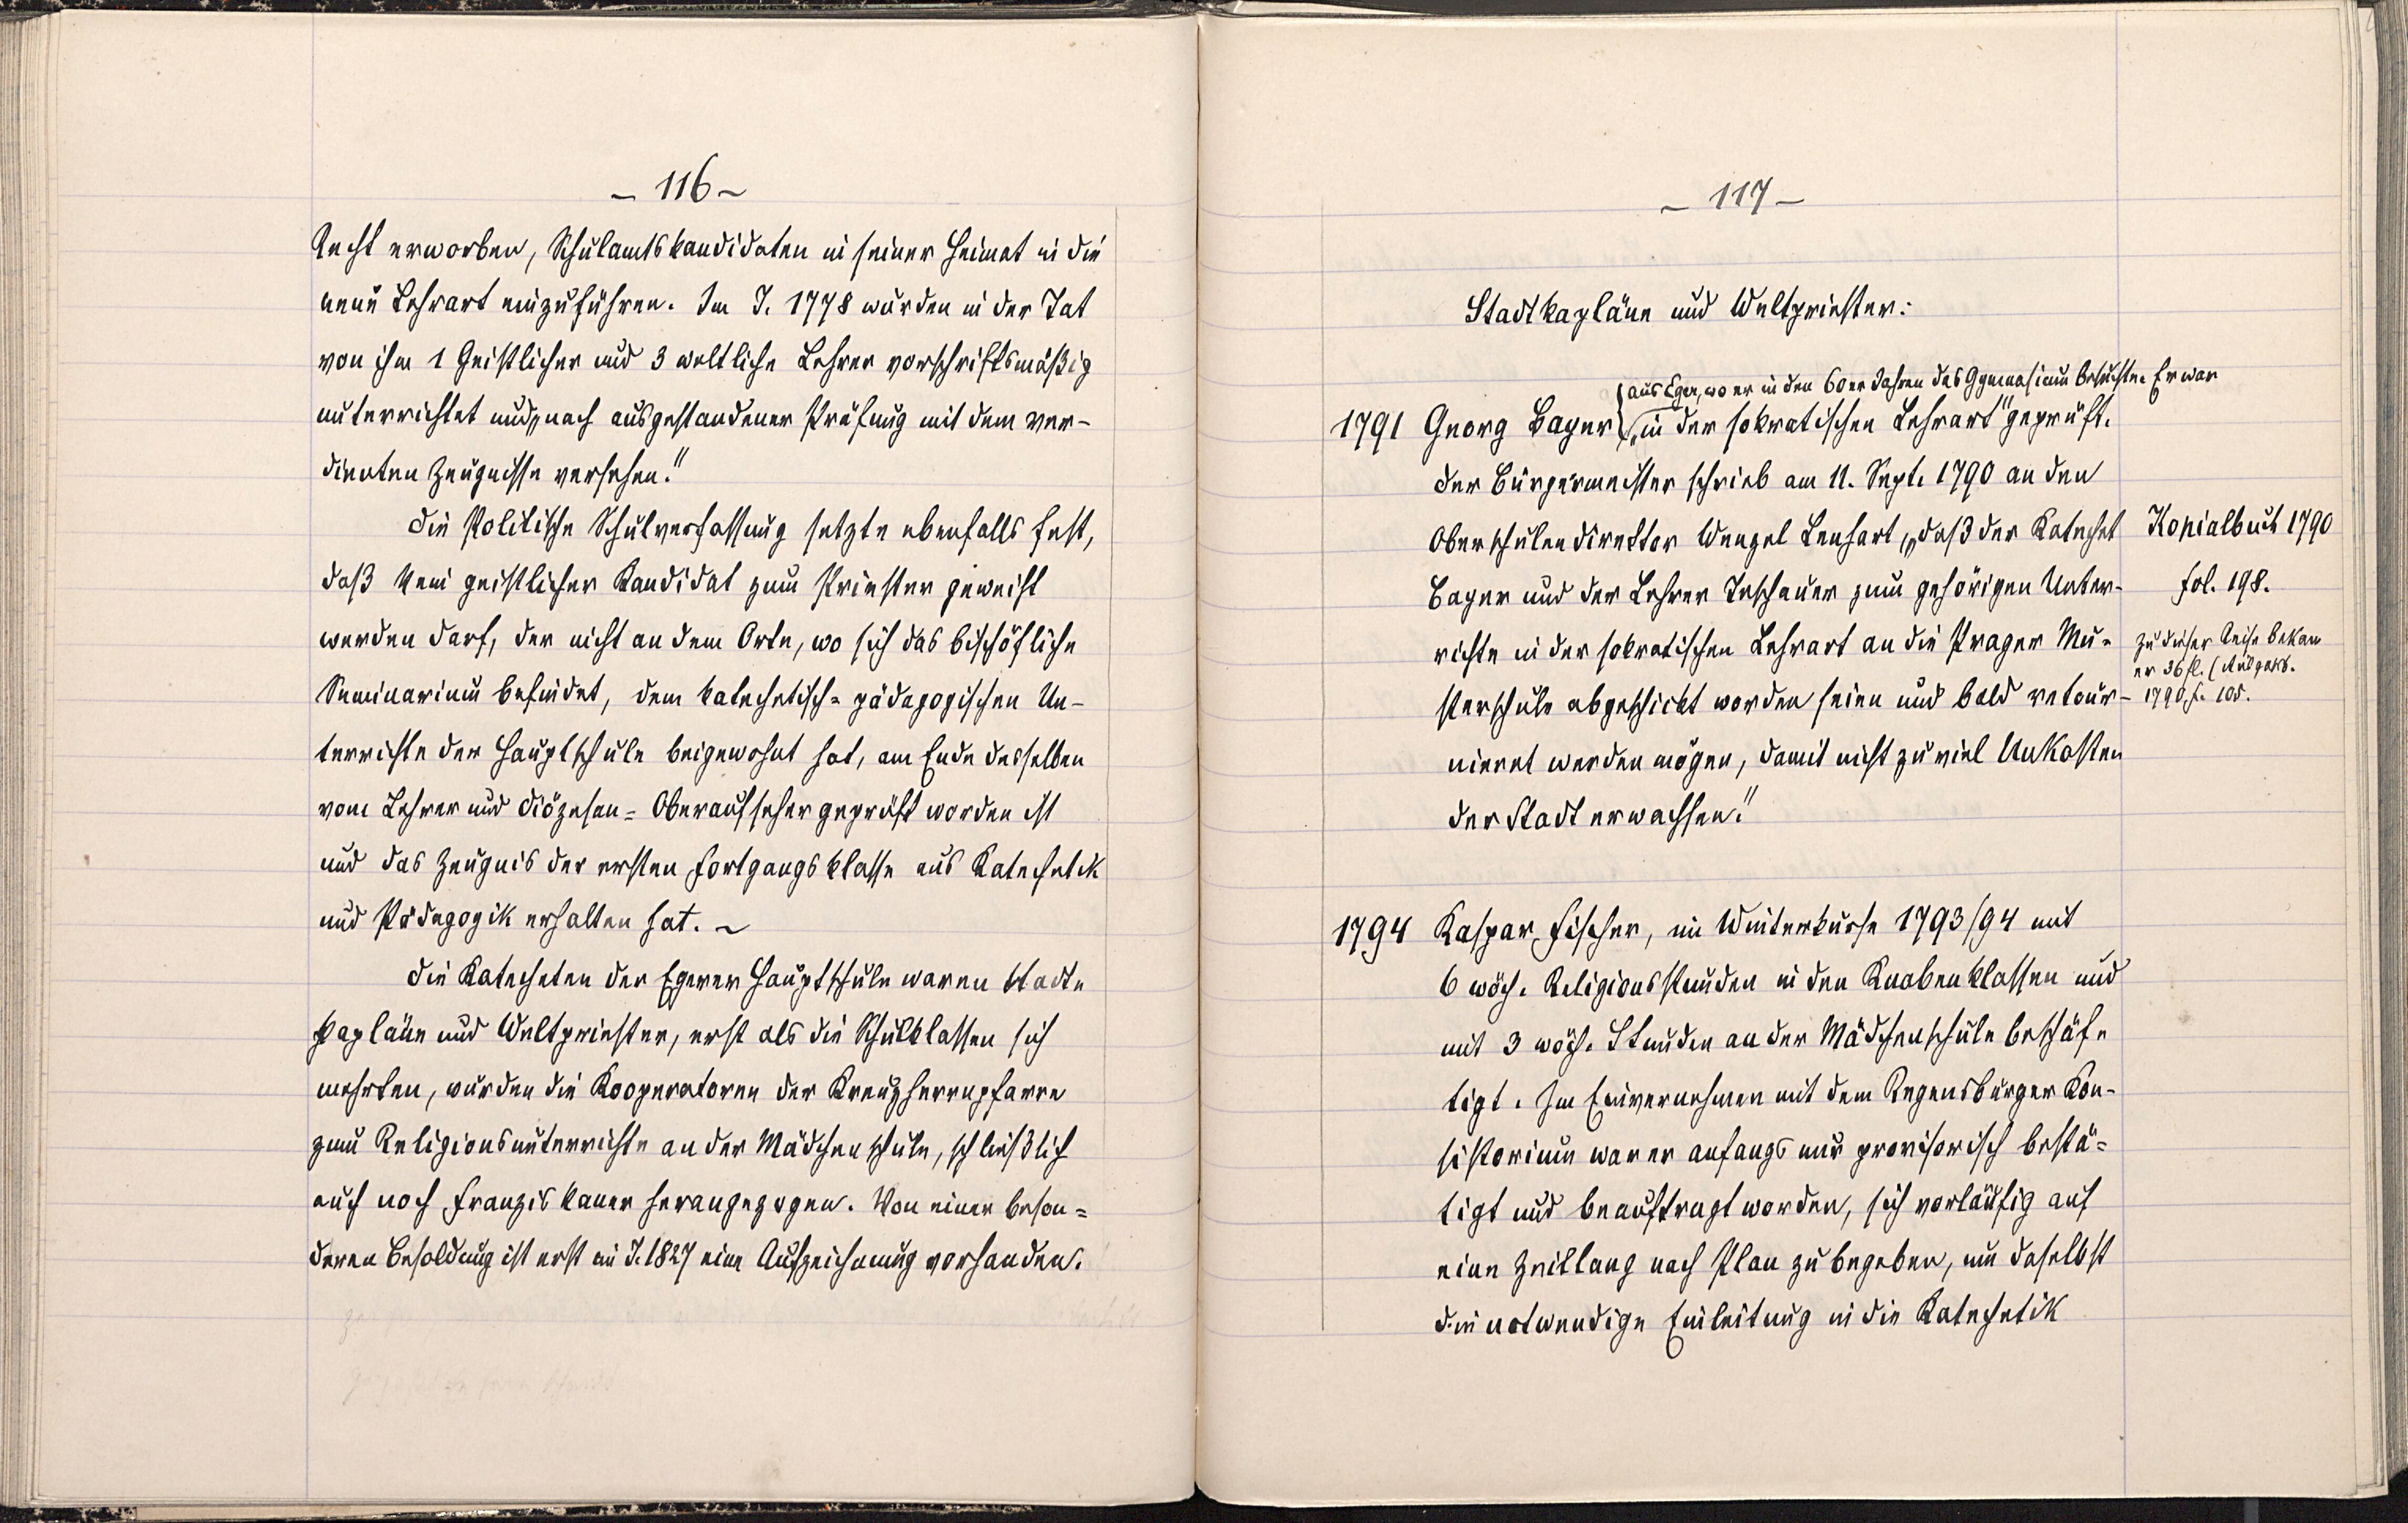 – 116 –
Recht erworben, Schulamtskandidaten in seiner Heimat in die
neue Lehrart einzuführen. Im J. 1778 wurden in der Tat
von ihm 1 Geistlicher und 3 weltliche Lehrer vorschriftsmäßig
unterrichtet und „nach ausgestandener Prüfung mit dem ver-
dienten Zeugnisse versehen."
Die Politische Schulverfassung setzte ebenfalls fest,
daß kein geistlicher Kandidat zum Priester geweiht
werden darf, der nicht an dem Orte, wo sich das bischöfliche
Seminarium befindet, dem katechetisch-pädagogischen Un-
terrichte der Hauptschule beigewohnt hat, am Ende desselben
vom Lehrer und Diözesan-Oberaufseher geprüft worden ist
und das Zeugnis der ersten Fortgangsklasse aus Katechetik
und Pädagogik erhalten hat. –
Die Katecheten der Egerer Hauptschule waren Stadt-
kapläne und Weltpriester, erst als die Schulklassen sich
mehrten, wurden die Kooperatoren der Kreuzherrnpfarre
zum Religionsunterrichte an der Mädchenschule, schließlich
auch noch Franziskaner herangezogen. Von einer beson-
deren Besoldung ist erst im J. 1827 eine Aufzeichnung vorhanden.
– 117 –
Stadtkapläne und Weltpriester:
aus Eger, wo er in den 60er Jahren das Gymnasium besuchte. Er war
1791 Georg Bayer „in der sokratischen Lehrart" geprüft.
Der Bürgermeister schrieb am 11. Sept. 1790 an den
Oberschulendirektor Wenzel Lenhart, „daß der Katechet
Kopialbuch 1790
Bayer und der Lehrer Teschauer zum gehörigen Unter-
fol. 198.
richte in der sokratischen Lehrart an die Prager Mu-
sterschule abgeschickt worden seien und bald retour-
zu dieser Reise bekam
er 36 fl. (Ausgabb.
1790, f. 105.
nieret werden mögen, damit nicht zu viel Unkosten
der Stadt erwachsen."
1794 Kaspar Fischer, im Winterkurse 1793/94 mit
6 wöch. Religionsstunden in den Knabenklassen und
mit 3 wöch. Stunden an der Mädchenschule beschäf-
tigt. Im Einvernehmen mit dem Regensburger Kon-
sistorium war er anfangs nur provisorisch bestä-
tigt und beauftragt worden, sich vorläufig auf
eine Zeitlang nach Plan zu begeben, um daselbst
die notwendige Einleitung in die Katechetik